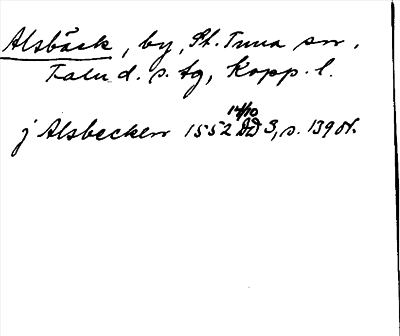 Alsbäck, by, St. Tuna sn,
Falu d. s. tg, Kopp. l.
14/10
j Alsbecken 1552 DD 3, s. 139 or.